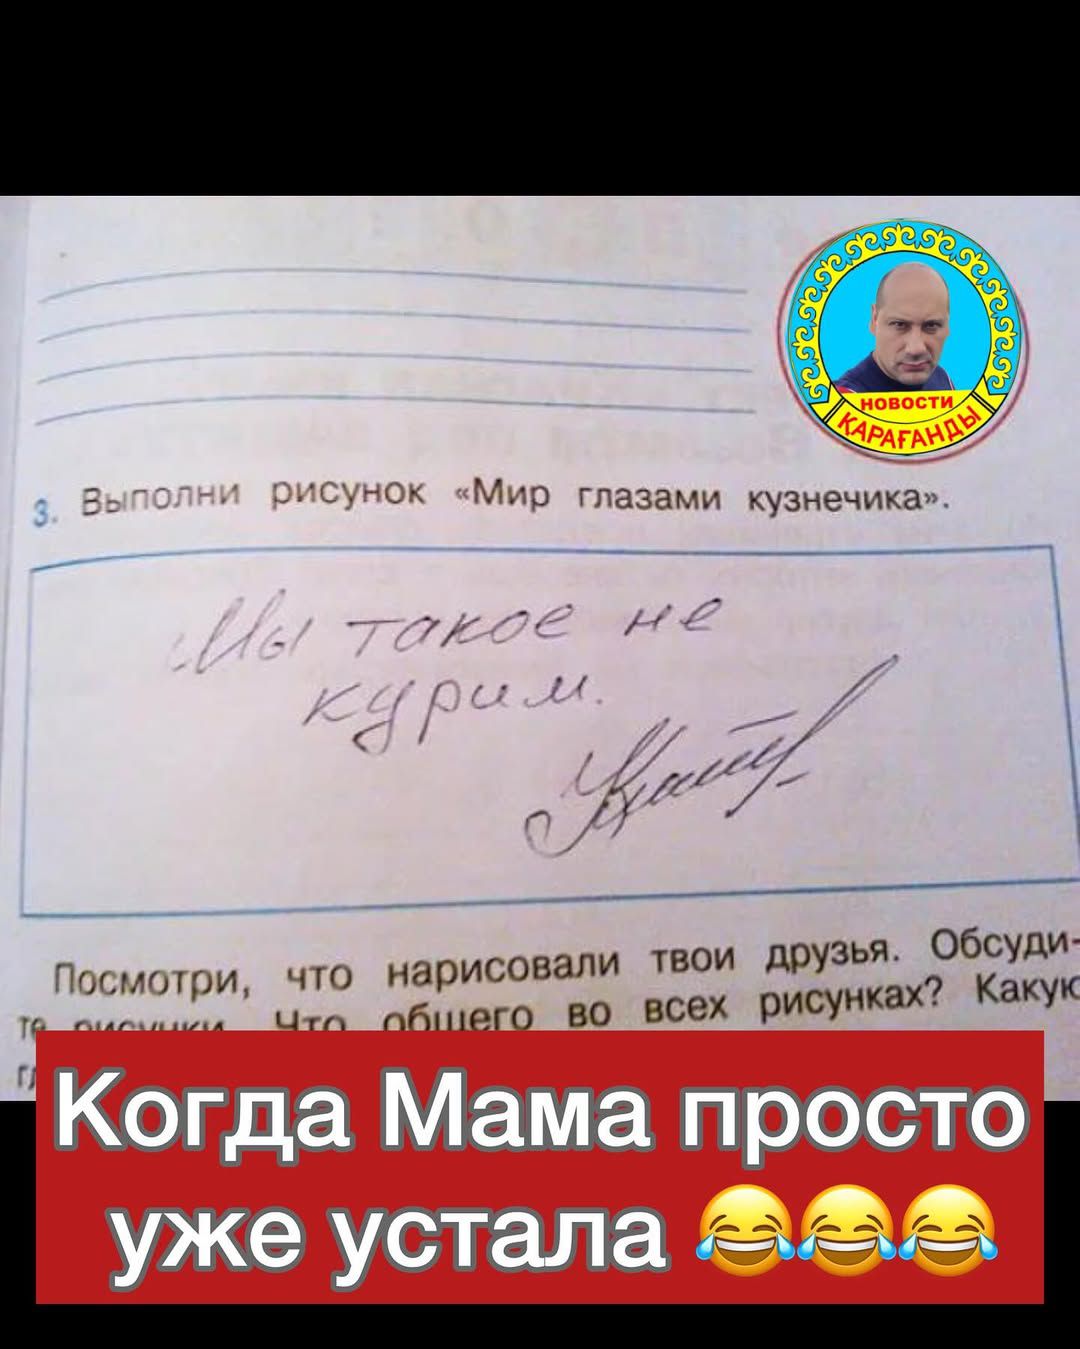 НОВОСТИ
КАРАҒАНДЫ
3. Выполни рисунок «Мир глазами кузнечика».
Мы такое не
курим.
Посмотри, что нарисовали твои друзья. Обсуди-
те рисунки. Что общего во всех рисунках? Какую
Когда Мама просто
уже устала 😂😂😂